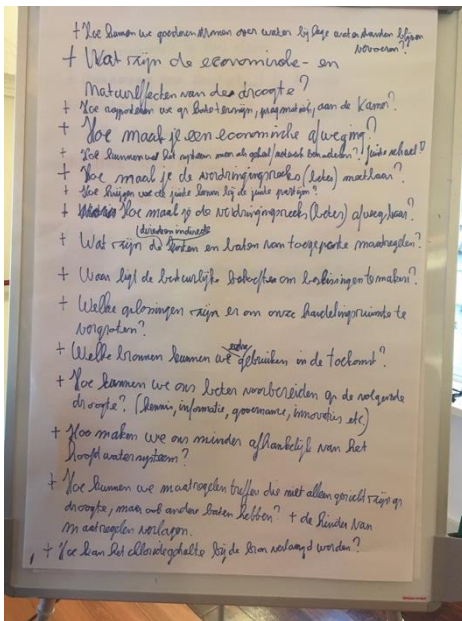 + Hoe kunnen we goederenstromen over water bij lage waterstanden blijven
bevaren?
+ Wat zijn de economische- en
natuureffecten van de droogte?
+ Hoe rapporteren we op korte termijn, pragmatisch, aan de Kamer?
+ Hoe maak je een economische afweging?
+ Hoe kunnen we het systeem meer als geheel / netwerk behandelen? juiste schaal?
+ Hoe maak je de verdringingsreeks (beter) meetbaar?
+ Hoe krijgen we de juiste kennis bij de juiste partijen?
+ Hoe maak je de verdringingsreeks (beter) afweegbaar?
(direct en indirect)
+ Wat zijn de kosten en baten van toegepaste maatregelen?
+ Waar ligt de bestuurlijke behoefte om beslissingen te maken?
+ Welke oplossingen zijn er om onze handelingsruimte te
vergroten?
+ Welke bronnen kunnen we extra gebruiken in de toekomst?
+ Hoe kunnen we ons beter voorbereiden op de volgende
droogte? (kennis, informatie, governance, innovaties etc)
+ Hoe maken we ons minder afhankelijk van het
hoofdwatersysteem?
+ Hoe kunnen we maatregelen treffen die niet alleen gericht zijn op
droogte, maar ook andere baten hebben? + de hinder van
maatregelen verlagen.
+ Hoe kan het chloridegehalte bij de bron verlaagd worden?